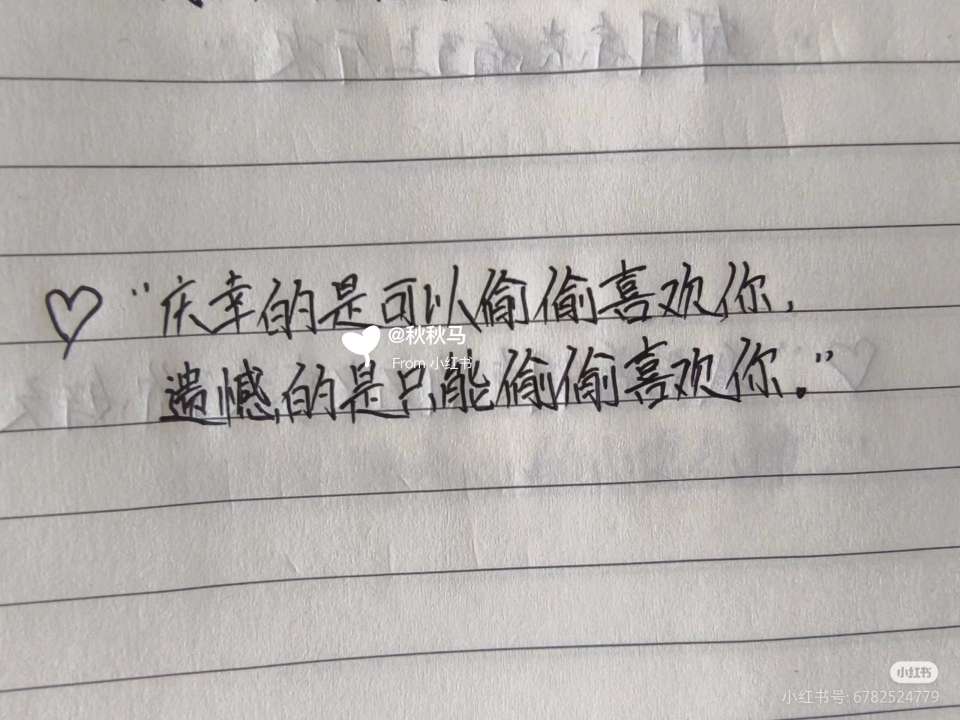 “庆幸的是可以偷偷喜欢你,
@秋秋马
From 小红书
遗憾的是只能偷偷喜欢你.”
小红书
小红书号: 6782524779